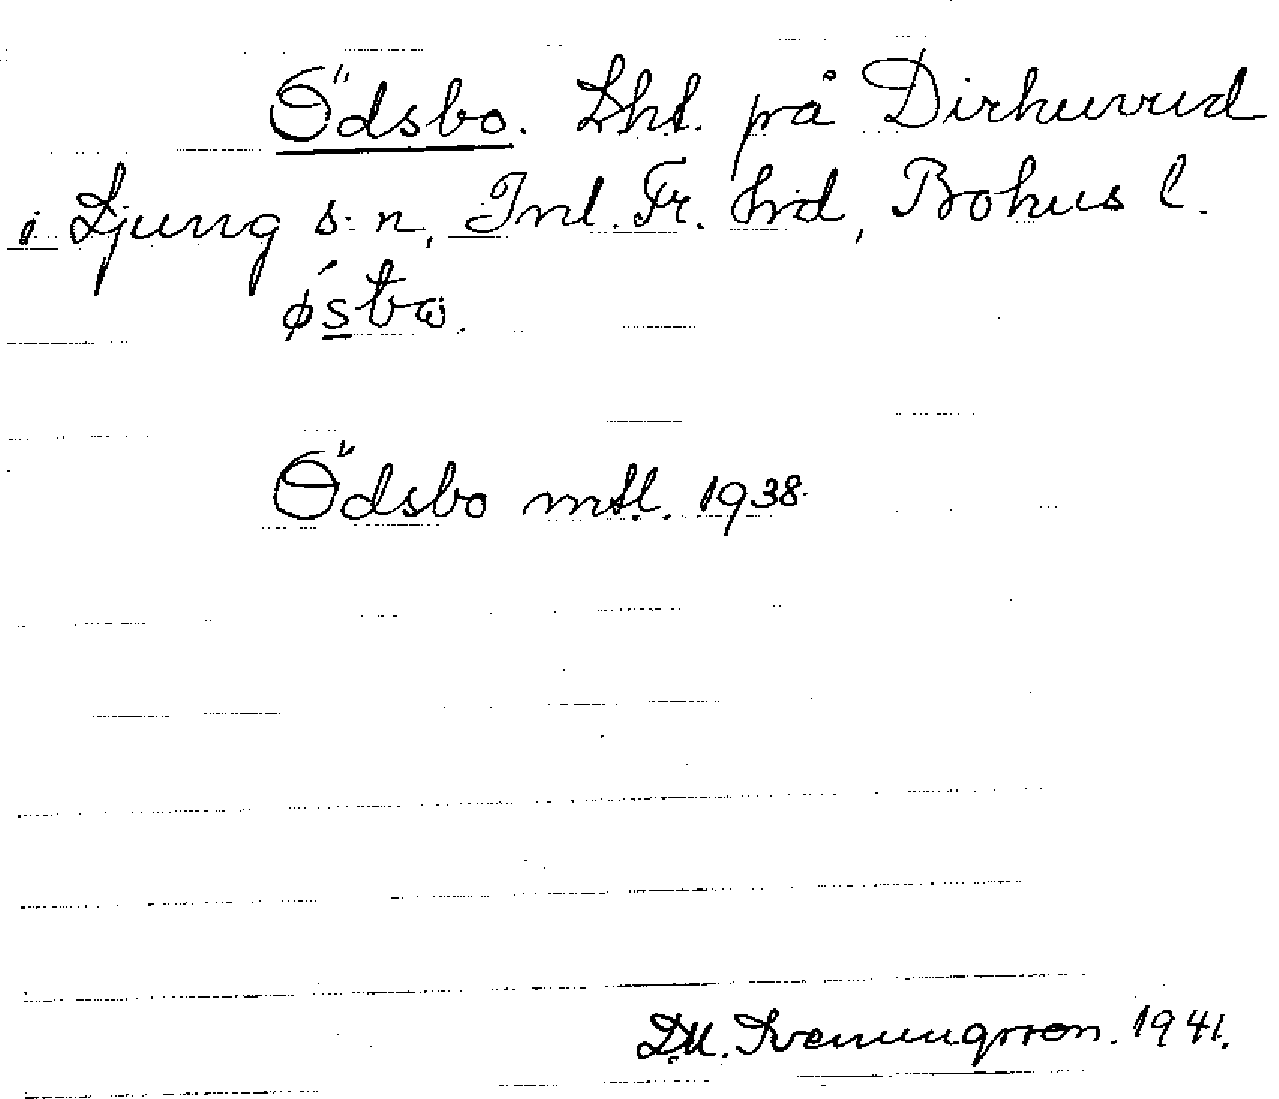 Ödsbo. Lht. på Dirhuvud
i Ljung s:n, Inl. Fr. hrd, Bohus l.
Ödsbo mtl. 1938.
D.M. Svenungsson. 1941.